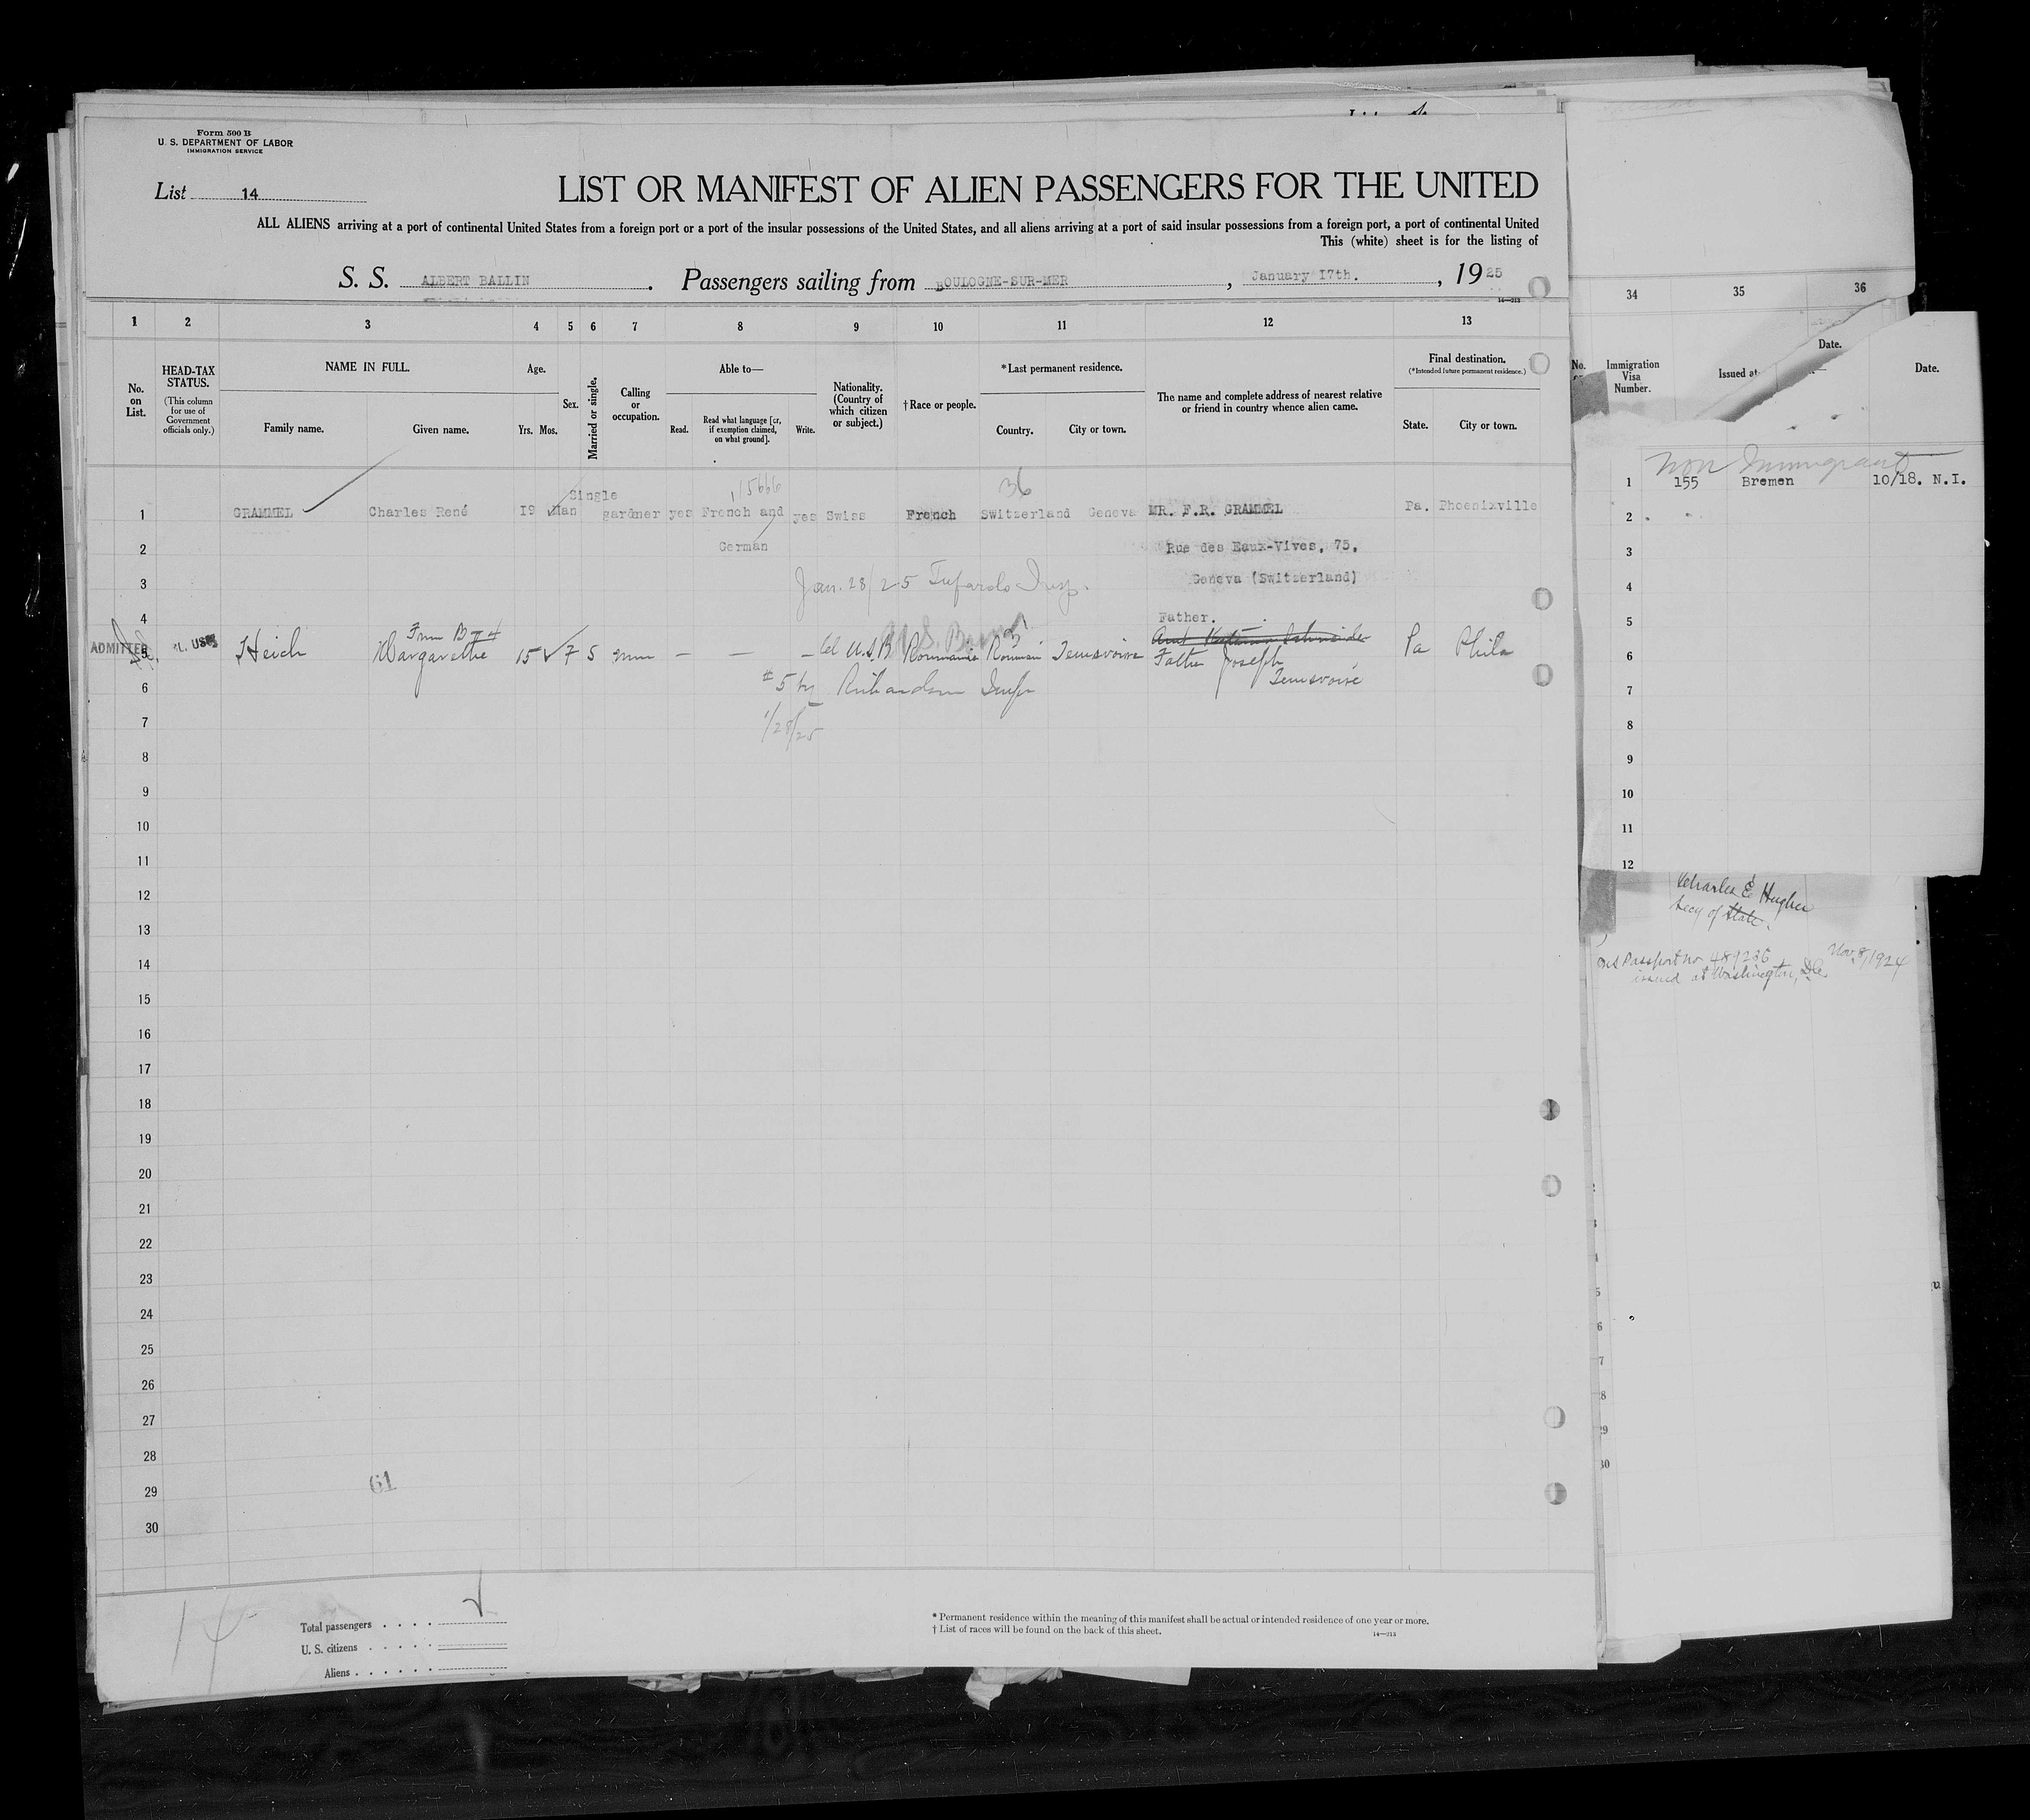 Form 500 B
U. S. DEPARTMENT OF LABOR
IMMIGRATION SERVICE
List 14
LIST OR MANIFEST OF ALIEN PASSENGERS FOR THE UNITED
ALL ALIENS arriving at a port of continental United States from a foreign port or a port of the insular possessions of the United States, and all aliens arriving at a port of said insular possessions from a foreign port, a port of continental United
This (white) sheet is for the listing of
S. S. ALBERT BALLIN. Passengers sailing from BOULOGNE-SUR-MER, January 17th., 1925
14—213
1 2 3 4 5 6 7 8 9 10 11 12 13
No. on List.
HEAD-TAX STATUS.
(This column for use of Government officials only.)
NAME IN FULL.
Family name. Given name.
Age.
Yrs. Mos.
Sex.
Married or single.
Calling or occupation.
Able to—
Read. Read what language [or, if exemption claimed, on what ground]. Write.
Nationality. (Country of which citizen or subject.)
†Race or people.
*Last permanent residence.
Country. City or town.
The name and complete address of nearest relative or friend in country whence alien came.
Final destination.
(*Intended future permanent residence.)
State. City or town.
34 35 36
Immigration Visa Number.
Issued at
Date.
Date.
Non Immigrant
1 155 Bremen 10/18. N.I.
115666 36
Single
1 GRAMMEL Charles René 19 Man gardner yes French and yes Swiss French Switzerland Geneva MR. F.R. GRAMMEL Pa. Phoenixville
2 German Rue des Eaux-Vives, 75,
3 Jan. 28/25 Insp. Geneva (Switzerland)
4 Father.
ADMITTED
5 Heich Margarethe 15 F S U.S.B Roumania Temesvoire Pa Phila
Father Joseph
Temesvoire
6 #5 by Richardson Insp
7 1/28/25
8
9
10
11
12
13
14
15
16
17
18
19
20
21
22
23
24
25
26
27
28
29
30
61
2
3
4
5
6
7
8
9
10
11
12
Charles E Hughes
Secy of State.
US Passport no 489236 Nov. 8, 1924
issued at Washington, D.C.
14
Total passengers
U. S. citizens
Aliens
* Permanent residence within the meaning of this manifest shall be actual or intended residence of one year or more.
† List of races will be found on the back of this sheet.
14—213